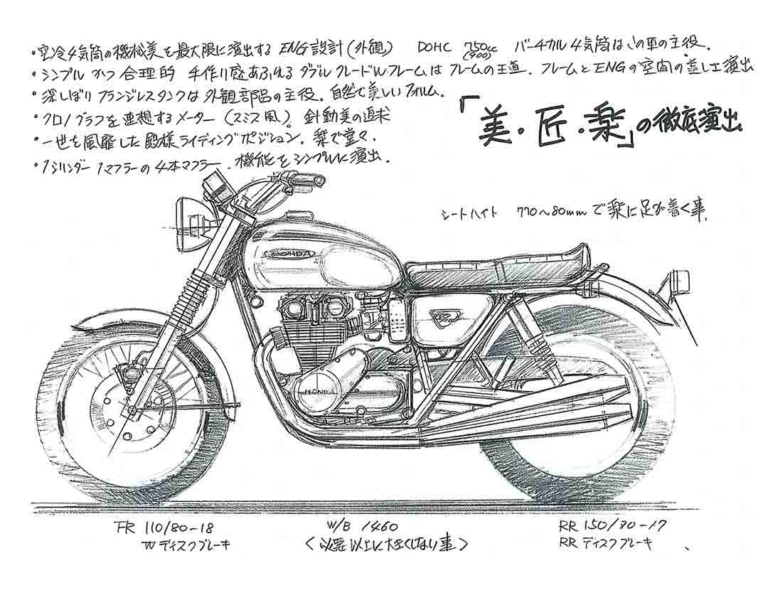 ・空冷4気筒の機械美を最大限に演出する ENG設計(外観) DOHC 750cc (900) バーチカル4気筒はこの車の主役.
・シンプル かつ 合理的 手作り感あふれる ダブルクレードルWフレームは フレームの王道. フレームとENGの空間の美しさ演出
・深しぼりフランジレスタンクは外観部品の主役. 自然で美しいフォルム.
・クロノグラフを連想するメーター(スミス風)。針動美の追求
・一世を風靡した殿様ライディングポジション. 楽で堂々.
・1シリンダー1マフラーの4本マフラー. 機能をシンプルに演出.
「美・匠・楽」の徹底演出.
シートハイト 770~80mmで楽に足が着く事.
HONDA
HONDA
FR 110/80-18
Wディスクブレーキ
W/B 1460
<必要以上に大きくしない事>
RR 150/70-17
RR ディスクブレーキ